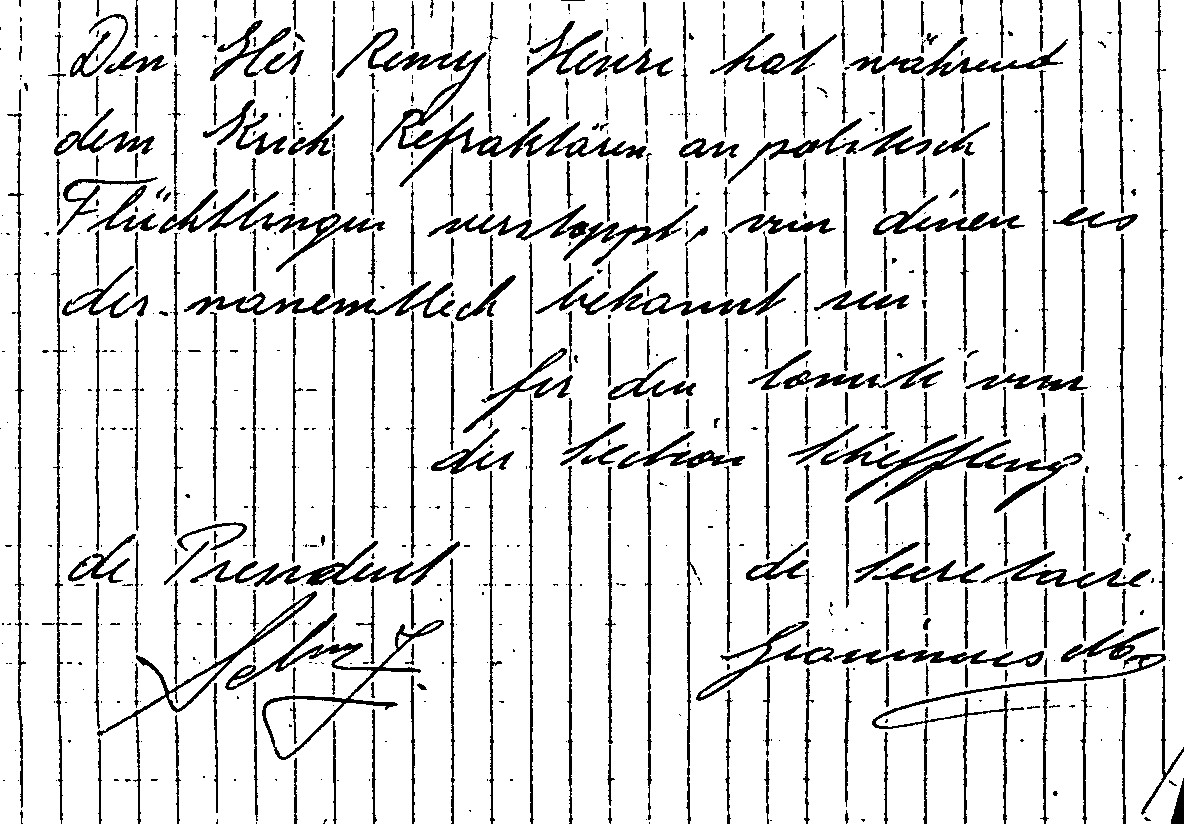 Den Hèr Remy Henri hat während
dem Krich Refraktären an politisch
Flüchtlingen verstoppt, vun dènen eis
der nanemtlech bekannt sin.
fir den Comité vun
der Section Scheffleng
de President
de Secretaire